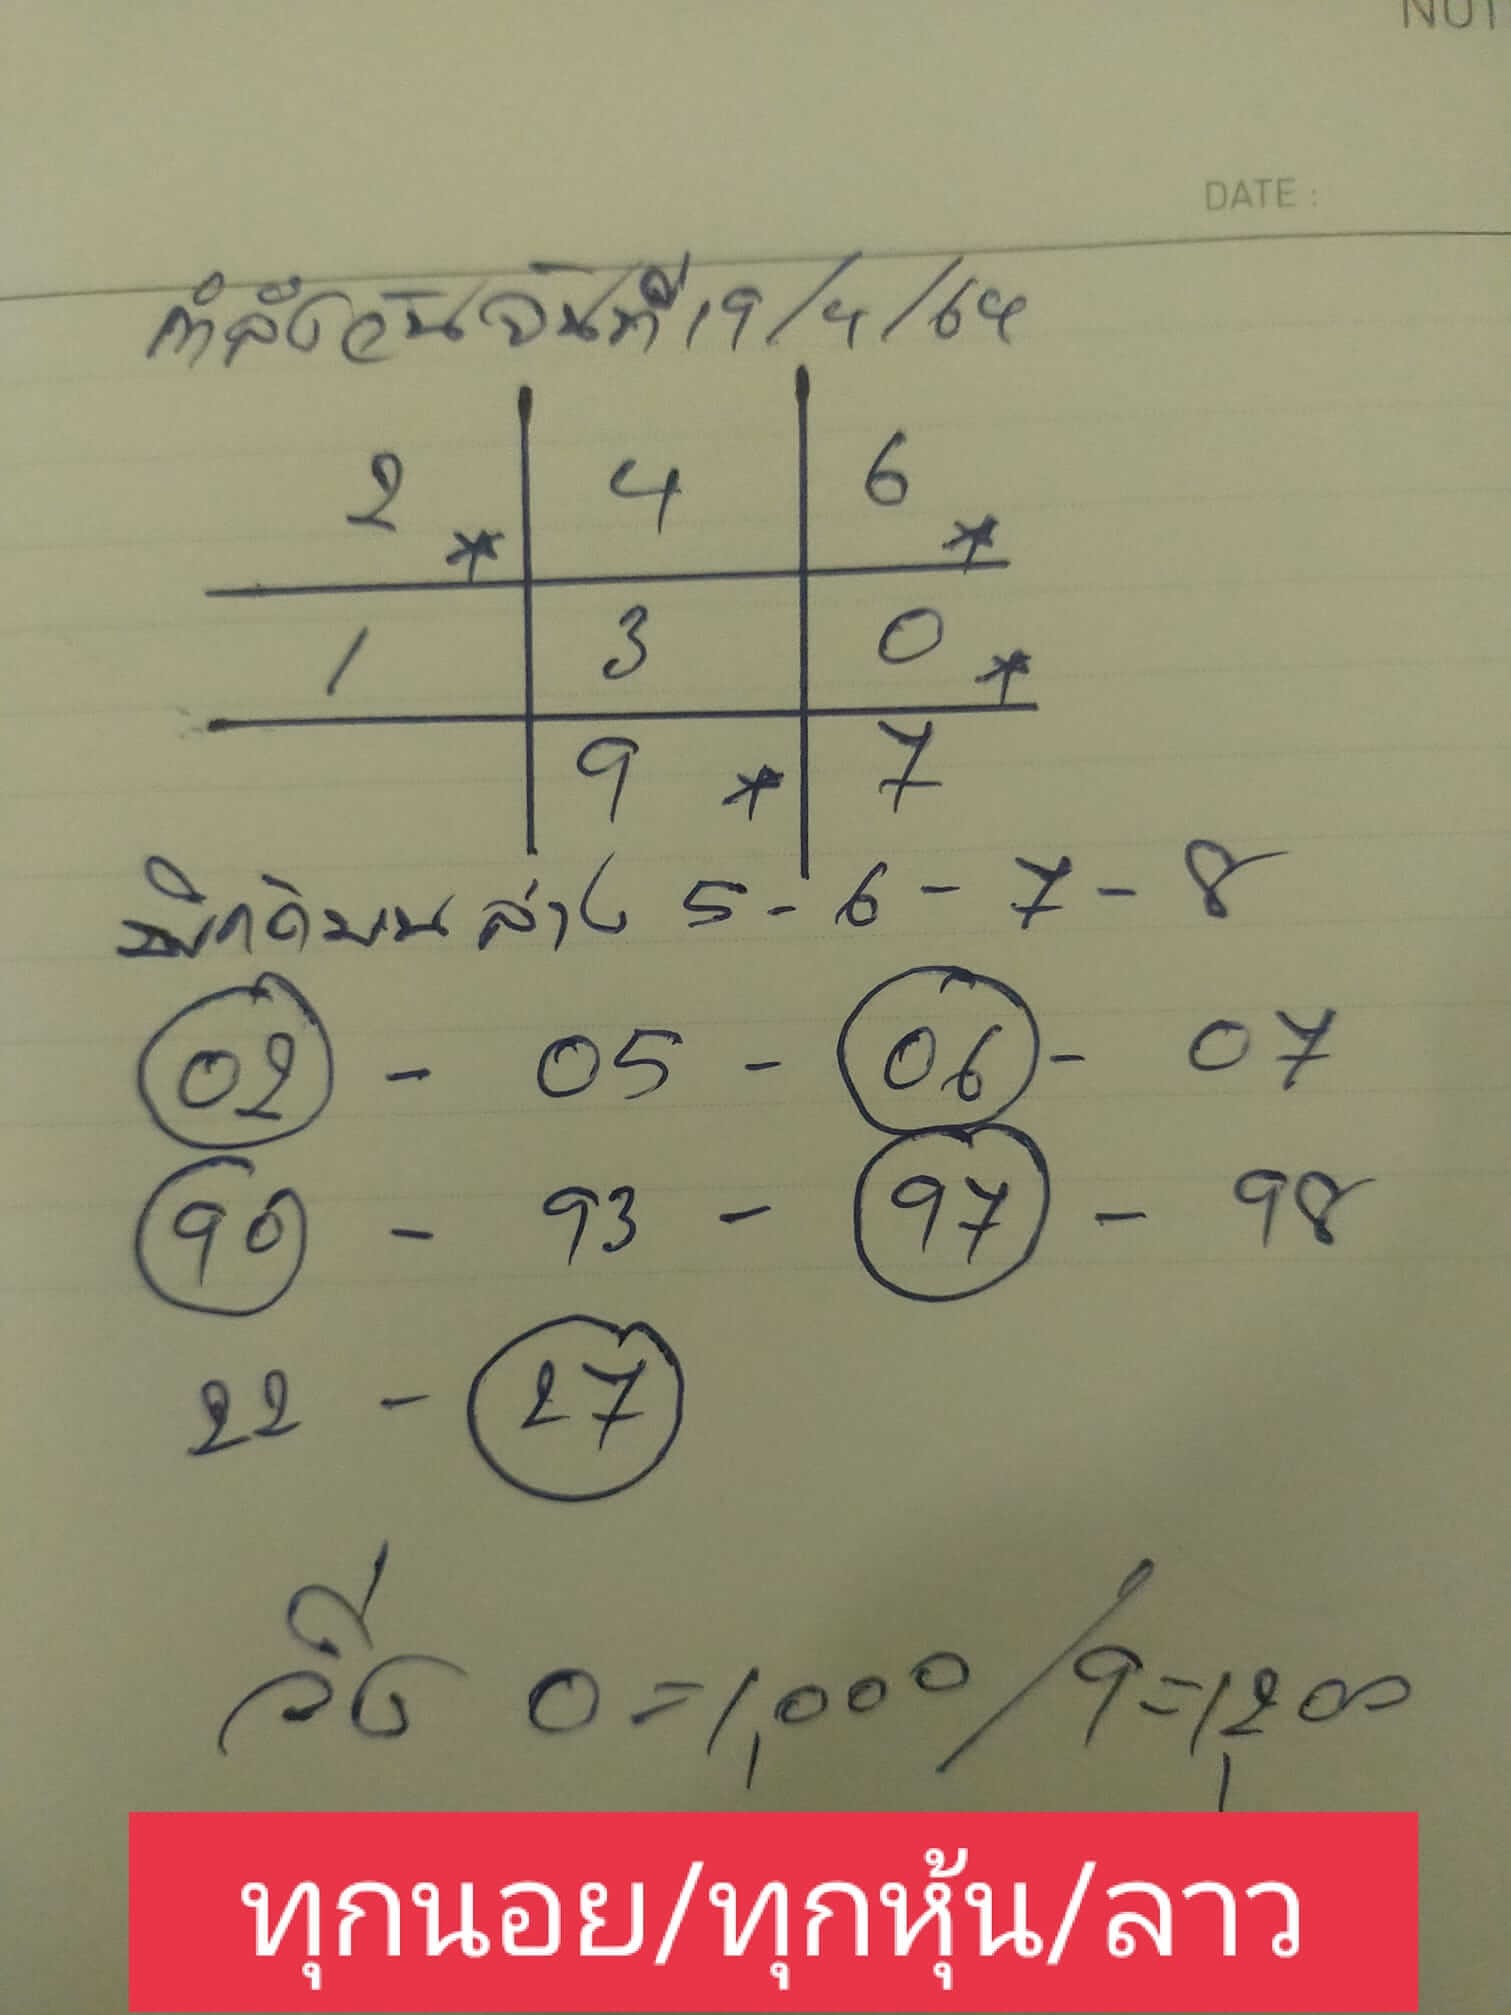 NOT
DATE :
กำลังวันจันทร์ที่ 19/4/64
2 * 4 6 *
1 3 0 *
9 * 7
พิกัดบน ล่าง 5 - 6 - 7 - 8
02 - 05 - 06 - 07
90 - 93 - 97 - 98
22 - 27
วิ่ง 0 = 1,000 / 9 = 1,200
ทุกนอย/ทุกหุ้น/ลาว